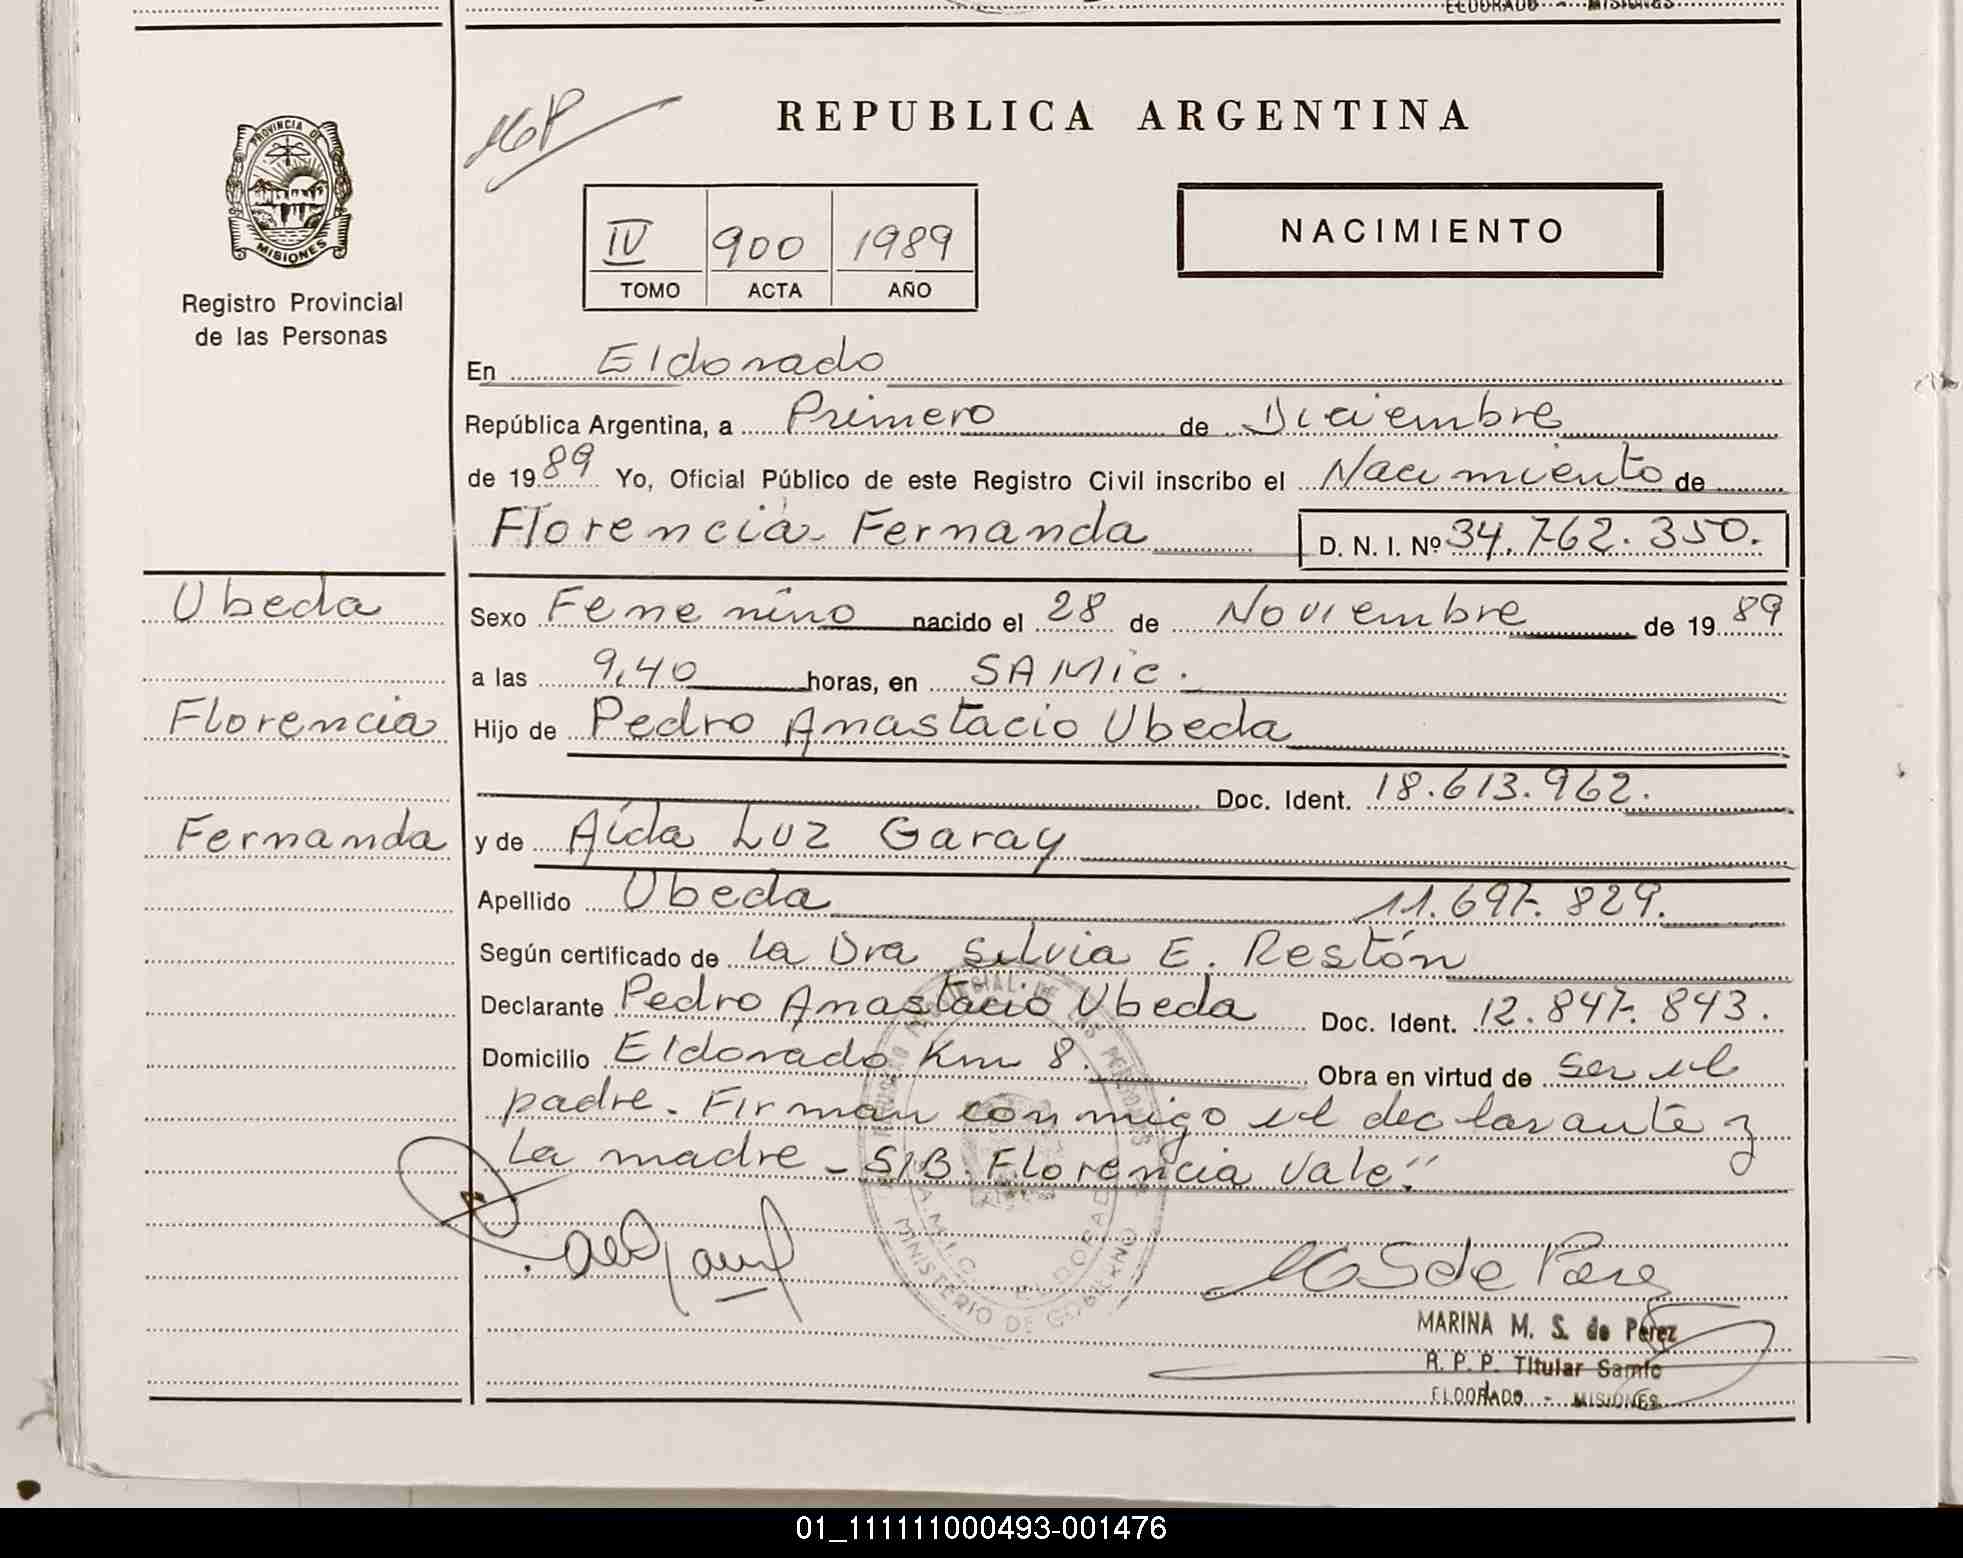 ELDORADO - MISIONES
PROVINCIA DE
MISIONES
Registro Provincial
de las Personas
REPUBLICA ARGENTINA
NACIMIENTO
IV 900 1989
TOMO ACTA AÑO
En Eldorado
República Argentina, a Primero de Diciembre
de 1989 Yo, Oficial Público de este Registro Civil inscribo el Nacimiento de
Florencia Fernanda D. N. I. Nº 34.762.350.
Ubeda
Florencia
Fernanda
Sexo Femenino nacido el 28 de Noviembre de 1989
a las 9,40 horas, en SAMic.
Hijo de Pedro Anastacio Ubeda
Doc. Ident. 18.613.962.
y de Aída Luz Garay
Apellido Ubeda 11.697.829.
Según certificado de la Dra Silvia E. Restón
Declarante Pedro Anastacio Ubeda Doc. Ident. 12.847.843.
Domicilio Eldorado Km 8. Obra en virtud de ser el
padre. Firman conmigo el declarante y
la madre - S/B. Florencia Vale."
MINISTERIO DE GOBIERNO
MS de Perez
MARINA M. S. de Perez
R. P. P. Titular Samic
ELDORADO - MISIONES
01_111111000493-001476